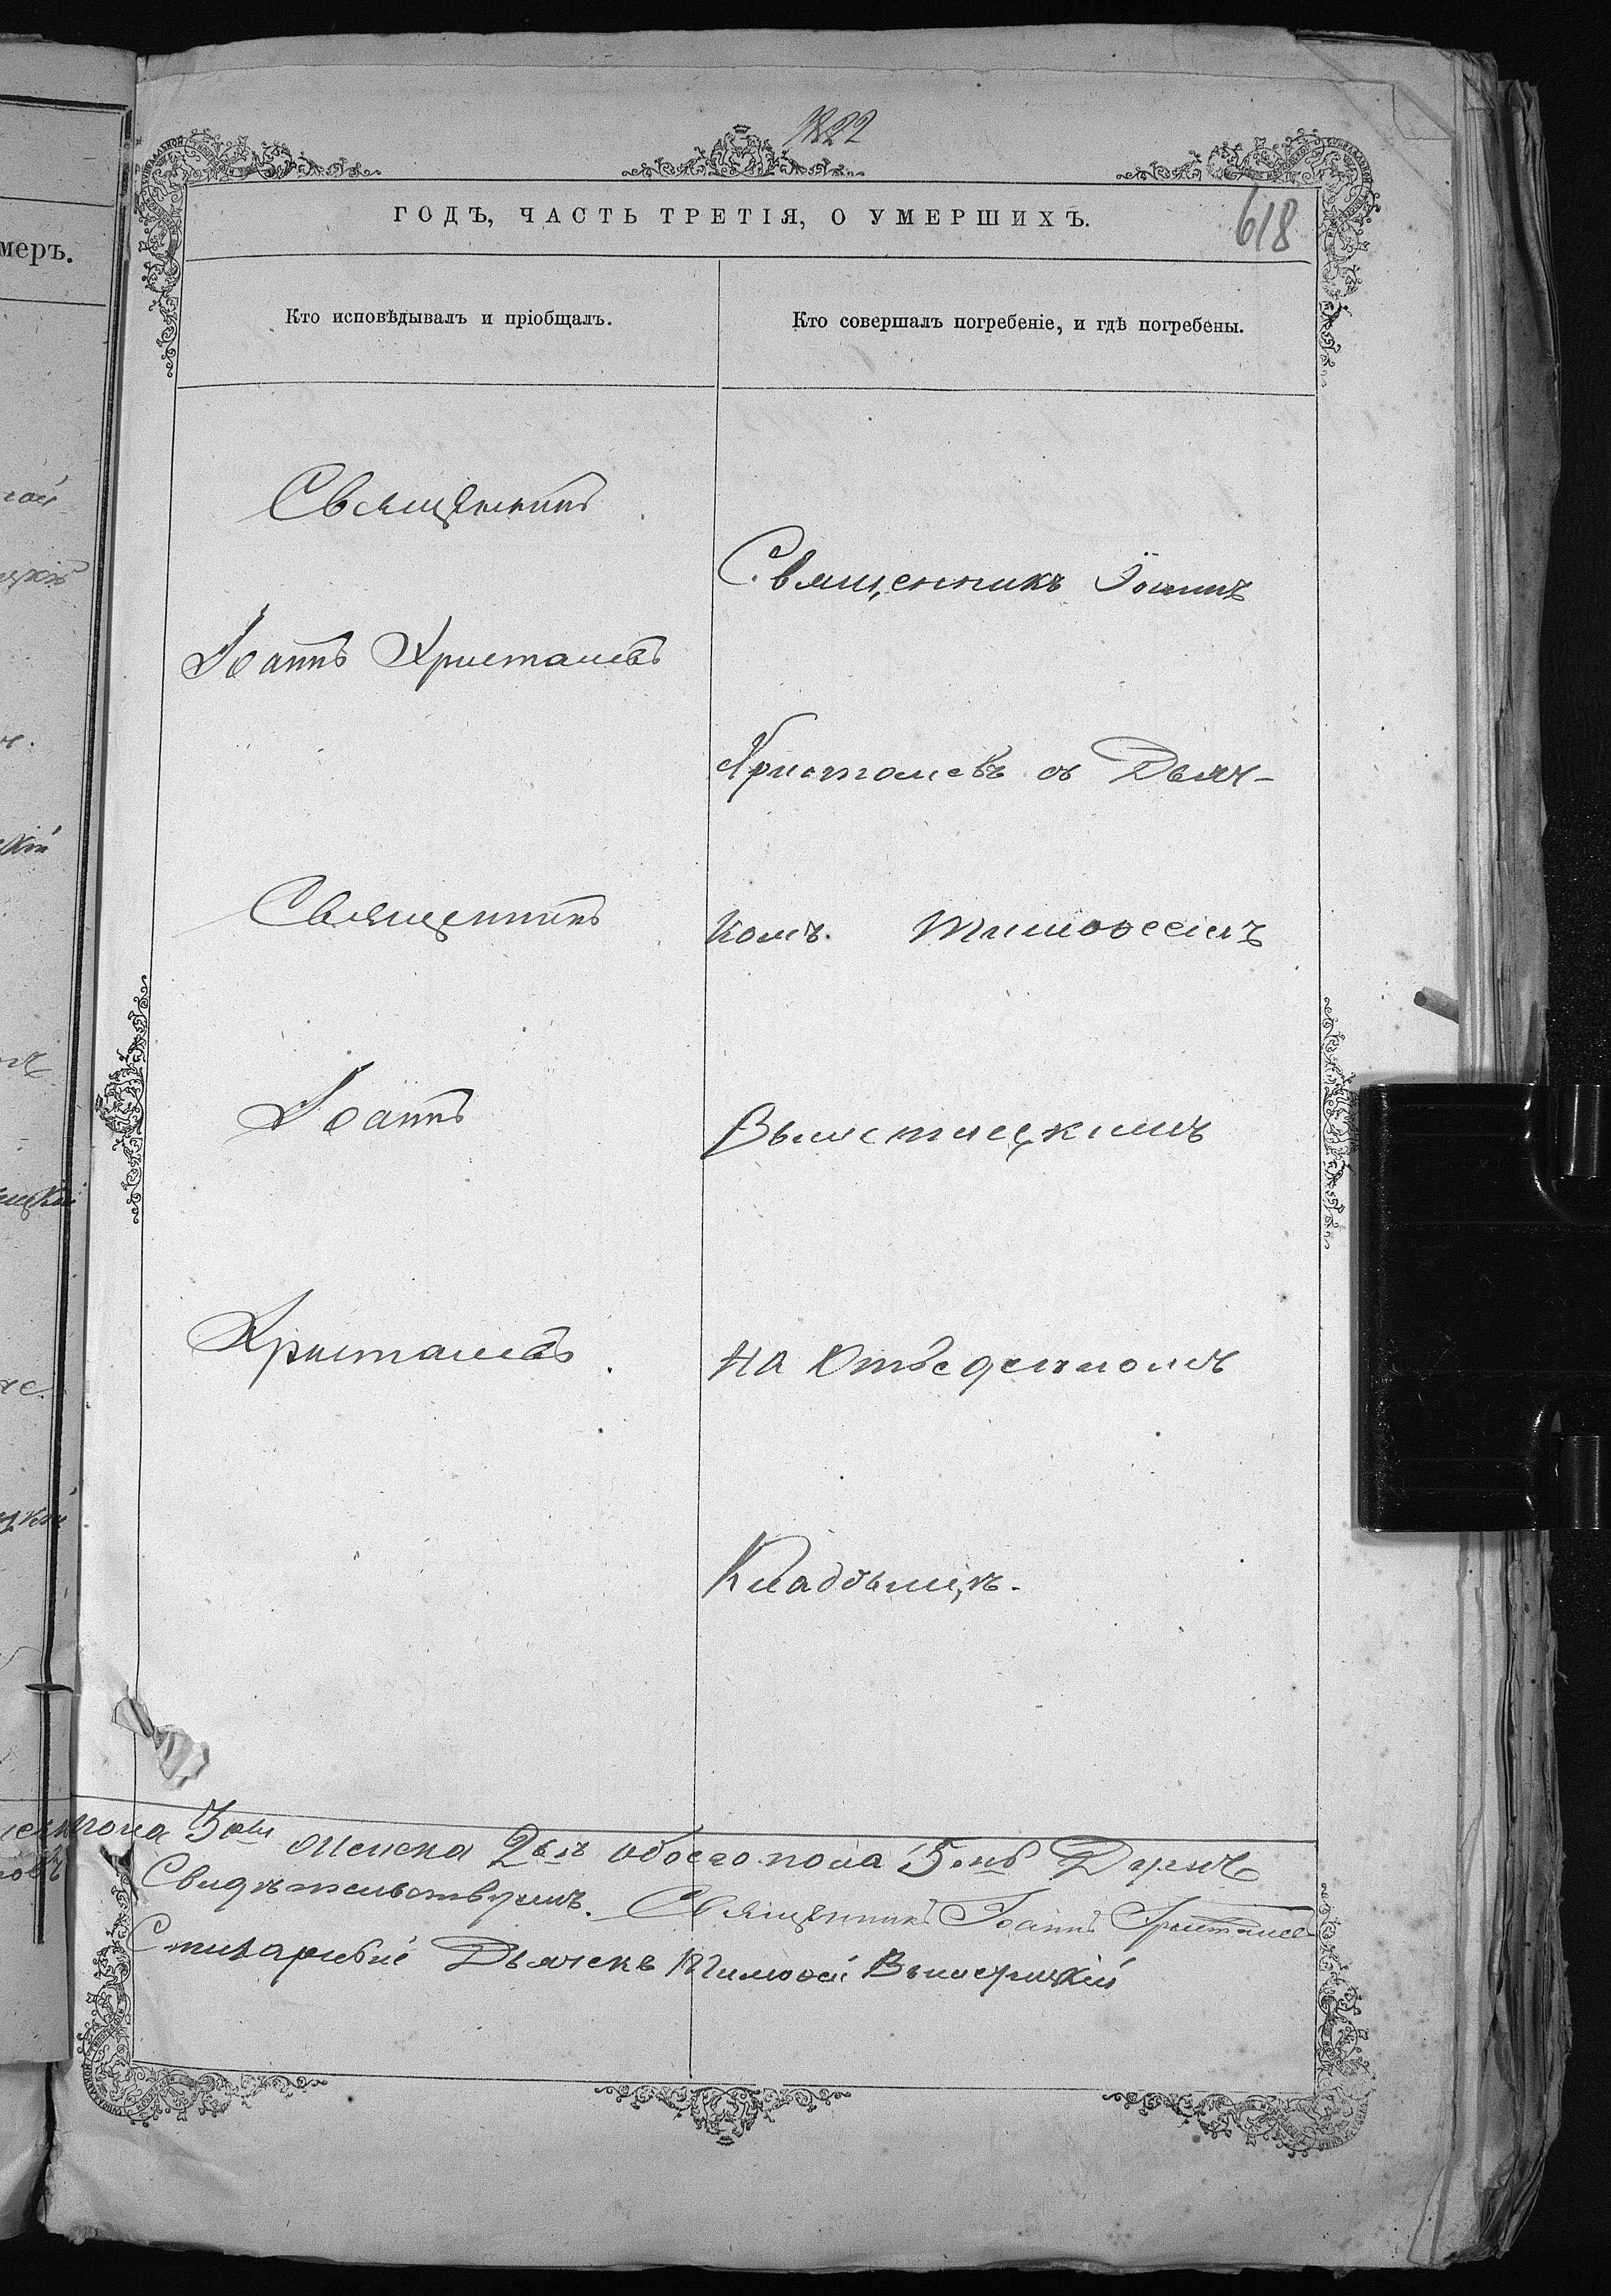 1822
ГОДЪ, ЧАСТЬ ТРЕТІЯ, О УМЕРШИХЪ.
618
меръ.
Кто исповѣдывалъ и пріобщалъ.
Кто совершалъ погребеніе, и гдѣ погребены.
Священникъ
Іоаннъ Кристалевъ
Священникъ
Іоаннъ
Кристалевъ
Священникъ Іоаннъ
Кристалевъ съ Дьяч-
комъ Тимоѳеемъ
на Отведенномъ
Кладбищѣ.
пола 3 женска 2 обоего пола 5 Душъ
Свидѣтельствуемъ. Священникъ Іоаннъ Кристалев
Дьячекъ Тимоѳей